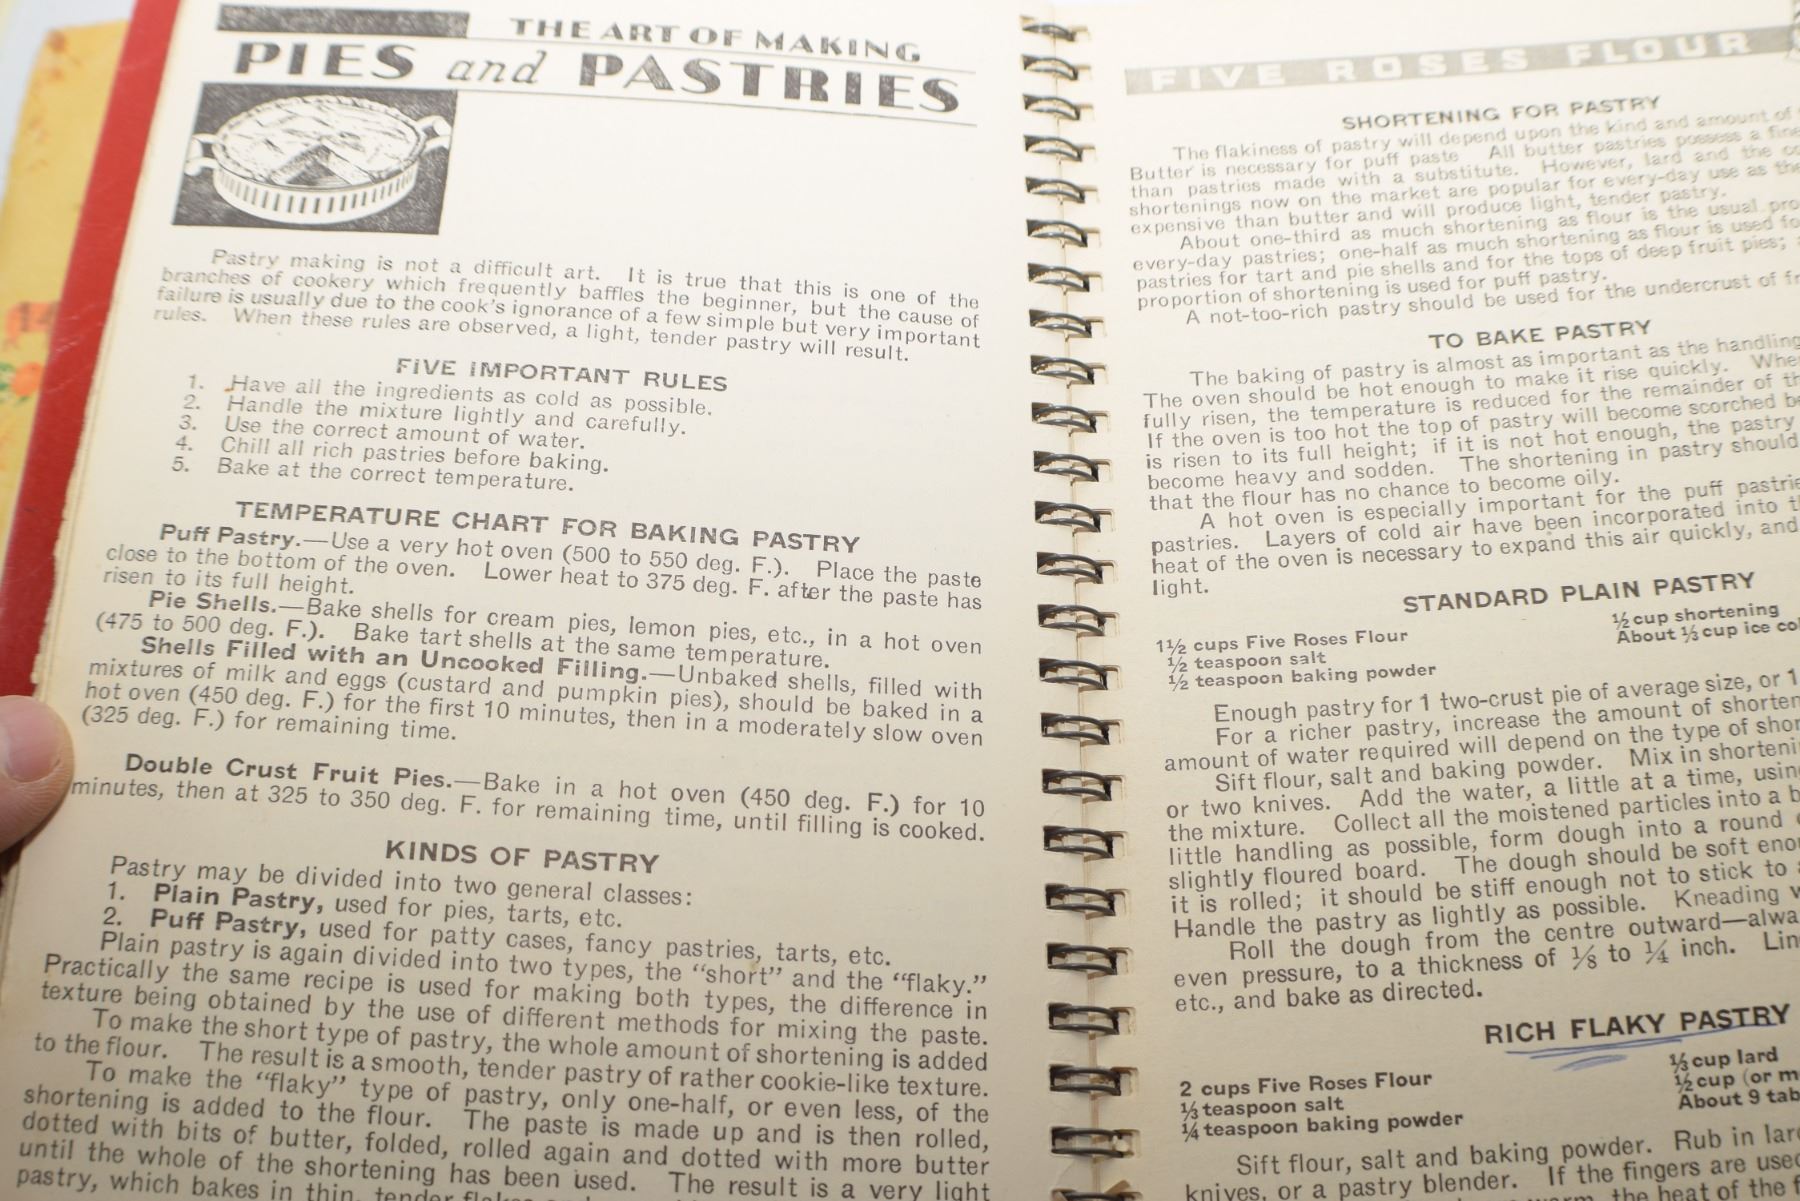 THE ART OF MAKING
PIES and PASTRIES
Pastry making is not a difficult art. It is true that this is one of the
branches of cookery which frequently baffles the beginner, but the cause of
failure is usually due to the cook's ignorance of a few simple but very important
rules. When these rules are observed, a light, tender pastry will result.
FIVE IMPORTANT RULES
1. Have all the ingredients as cold as possible.
2. Handle the mixture lightly and carefully.
3. Use the correct amount of water.
4. Chill all rich pastries before baking.
5. Bake at the correct temperature.
TEMPERATURE CHART FOR BAKING PASTRY
Puff Pastry.—Use a very hot oven (500 to 550 deg. F.). Place the paste
close to the bottom of the oven. Lower heat to 375 deg. F. after the paste has
risen to its full height.
Pie Shells.—Bake shells for cream pies, lemon pies, etc., in a hot oven
(475 to 500 deg. F.). Bake tart shells at the same temperature.
Shells Filled with an Uncooked Filling.—Unbaked shells, filled with
mixtures of milk and eggs (custard and pumpkin pies), should be baked in a
hot oven (450 deg. F.) for the first 10 minutes, then in a moderately slow oven
(325 deg. F.) for remaining time.
Double Crust Fruit Pies.—Bake in a hot oven (450 deg. F.) for 10
minutes, then at 325 to 350 deg. F. for remaining time, until filling is cooked.
KINDS OF PASTRY
Pastry may be divided into two general classes:
1. Plain Pastry, used for pies, tarts, etc.
2. Puff Pastry, used for patty cases, fancy pastries, tarts, etc.
Plain pastry is again divided into two types, the "short" and the "flaky."
Practically the same recipe is used for making both types, the difference in
texture being obtained by the use of different methods for mixing the paste.
To make the short type of pastry, the whole amount of shortening is added
to the flour. The result is a smooth, tender pastry of rather cookie-like texture.
To make the "flaky" type of pastry, only one-half, or even less, of the
shortening is added to the flour. The paste is made up and is then rolled,
dotted with bits of butter, folded, rolled again and dotted with more butter
until the whole of the shortening has been used. The result is a very light
pastry, which bakes in thin, tender
FIVE ROSES FLOUR
SHORTENING FOR PASTRY
The flakiness of pastry will depend upon the kind and amount of
Butter is necessary for puff paste All butter pastries possess a
than pastries made with a substitute. However, lard and the
shortenings now on the market are popular for every-day use as
expensive than butter and will produce light, tender pastry.
About one-third as much shortening as flour is the usual
every-day pastries; one-half as much shortening as flour is used
pastries for tart and pie shells and for the tops of deep fruit pies;
proportion of shortening is used for puff pastry.
A not-too-rich pastry should be used for the undercrust of
TO BAKE PASTRY
The baking of pastry is almost as important as the handling
The oven should be hot enough to make it rise quickly.
fully risen, the temperature is reduced for the remainder of
If the oven is too hot the top of pastry will become scorched
is risen to its full height; if it is not hot enough, the pastry
become heavy and sodden. The shortening in pastry should
that the flour has no chance to become oily.
A hot oven is especially important for the puff
pastries. Layers of cold air have been incorporated into
heat of the oven is necessary to expand this air quickly, and
light.
STANDARD PLAIN PASTRY
1½ cups Five Roses Flour ½ cup shortening
½ teaspoon salt About ⅓ cup ice
½ teaspoon baking powder
Enough pastry for 1 two-crust pie of average size, or 1
For a richer pastry, increase the amount of
amount of water required will depend on the type of
Sift flour, salt and baking powder. Mix in
or two knives. Add the water, a little at a time,
the mixture. Collect all the moistened particles into a
little handling as possible, form dough into a round
slightly floured board. The dough should be soft
it is rolled; it should be stiff enough not to stick to
Handle the pastry as lightly as possible. Kneading
Roll the dough from the centre outward—
even pressure, to a thickness of ⅛ to ¼ inch.
etc., and bake as directed.
RICH FLAKY PASTRY
2 cups Five Roses Flour ⅓ cup lard
⅓ teaspoon salt ½ cup (or
¼ teaspoon baking powder About 9
Sift flour, salt and baking powder. Rub in
knives, or a pastry blender. If the fingers are
the heat of the